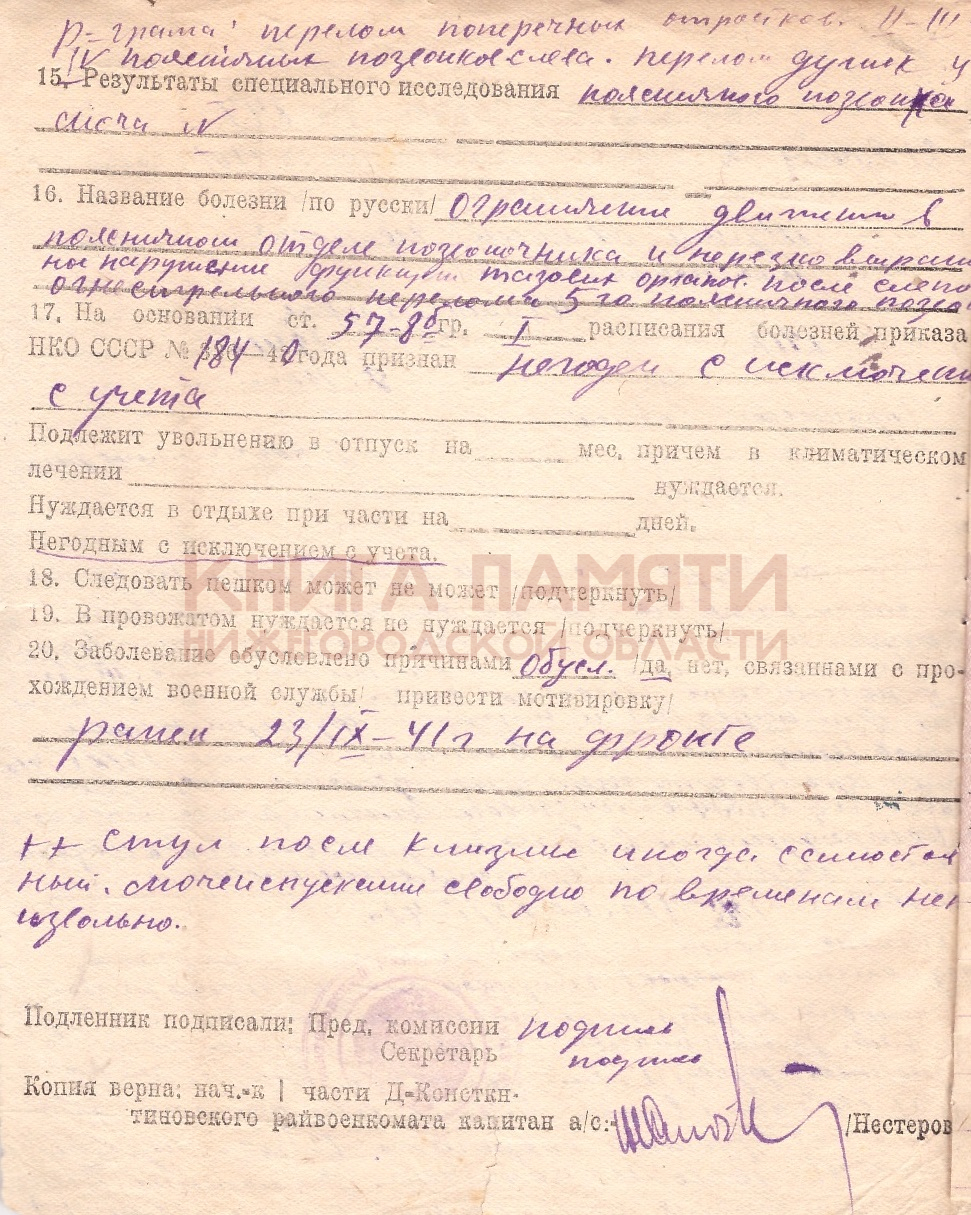 R-грама: перелом поперечных отростков. II-III
IV поясничных позвонков слева. перелом дужек у
15. Результаты специального исследования поясничного позвонка
IV
16. Название болезни /по русски/ Ограничение движении в
поясничном отделе позвоночника и нерезко выражен
ны нарушении функции тазовых органов. после слепо
огнестрельного перелома 3го поясничного позво
17. На основании ст. 57-8б гр. I расписания болезней приказа
НКО СССР № 184-40 года признан негоден с исключени
с учета
Подлежит увольнению в отпуск на мес. причем в климатическом
лечении нуждается.
Нуждается в отдыхе при части на дней.
Негодным с исключением с учета.
18. Следовать пешком может не может /подчеркнуть/
19. В провожатом нуждается не нуждается /подчеркнуть/
20. Заболевание обусловлено причинами обусл. /да, нет, связаннами с про-
хождением военной службы/ привести мотивировку/
ранен 23/IX-41г на фронте
++ Стул после клизмы иногда самостоя
ный. мочеиспускании свободно по временам неп
извольно.
Подленник подписали: Пред. комиссии подпись
Секретарь подпись
Копия верна: нач.-к 1 части Д-Консткн-
тиновского райвоенкомата капитан а/с:- /Нестеров
КНИГА ПАМЯТИ
НИЖЕГОРОДСКОЙ ОБЛАСТИ